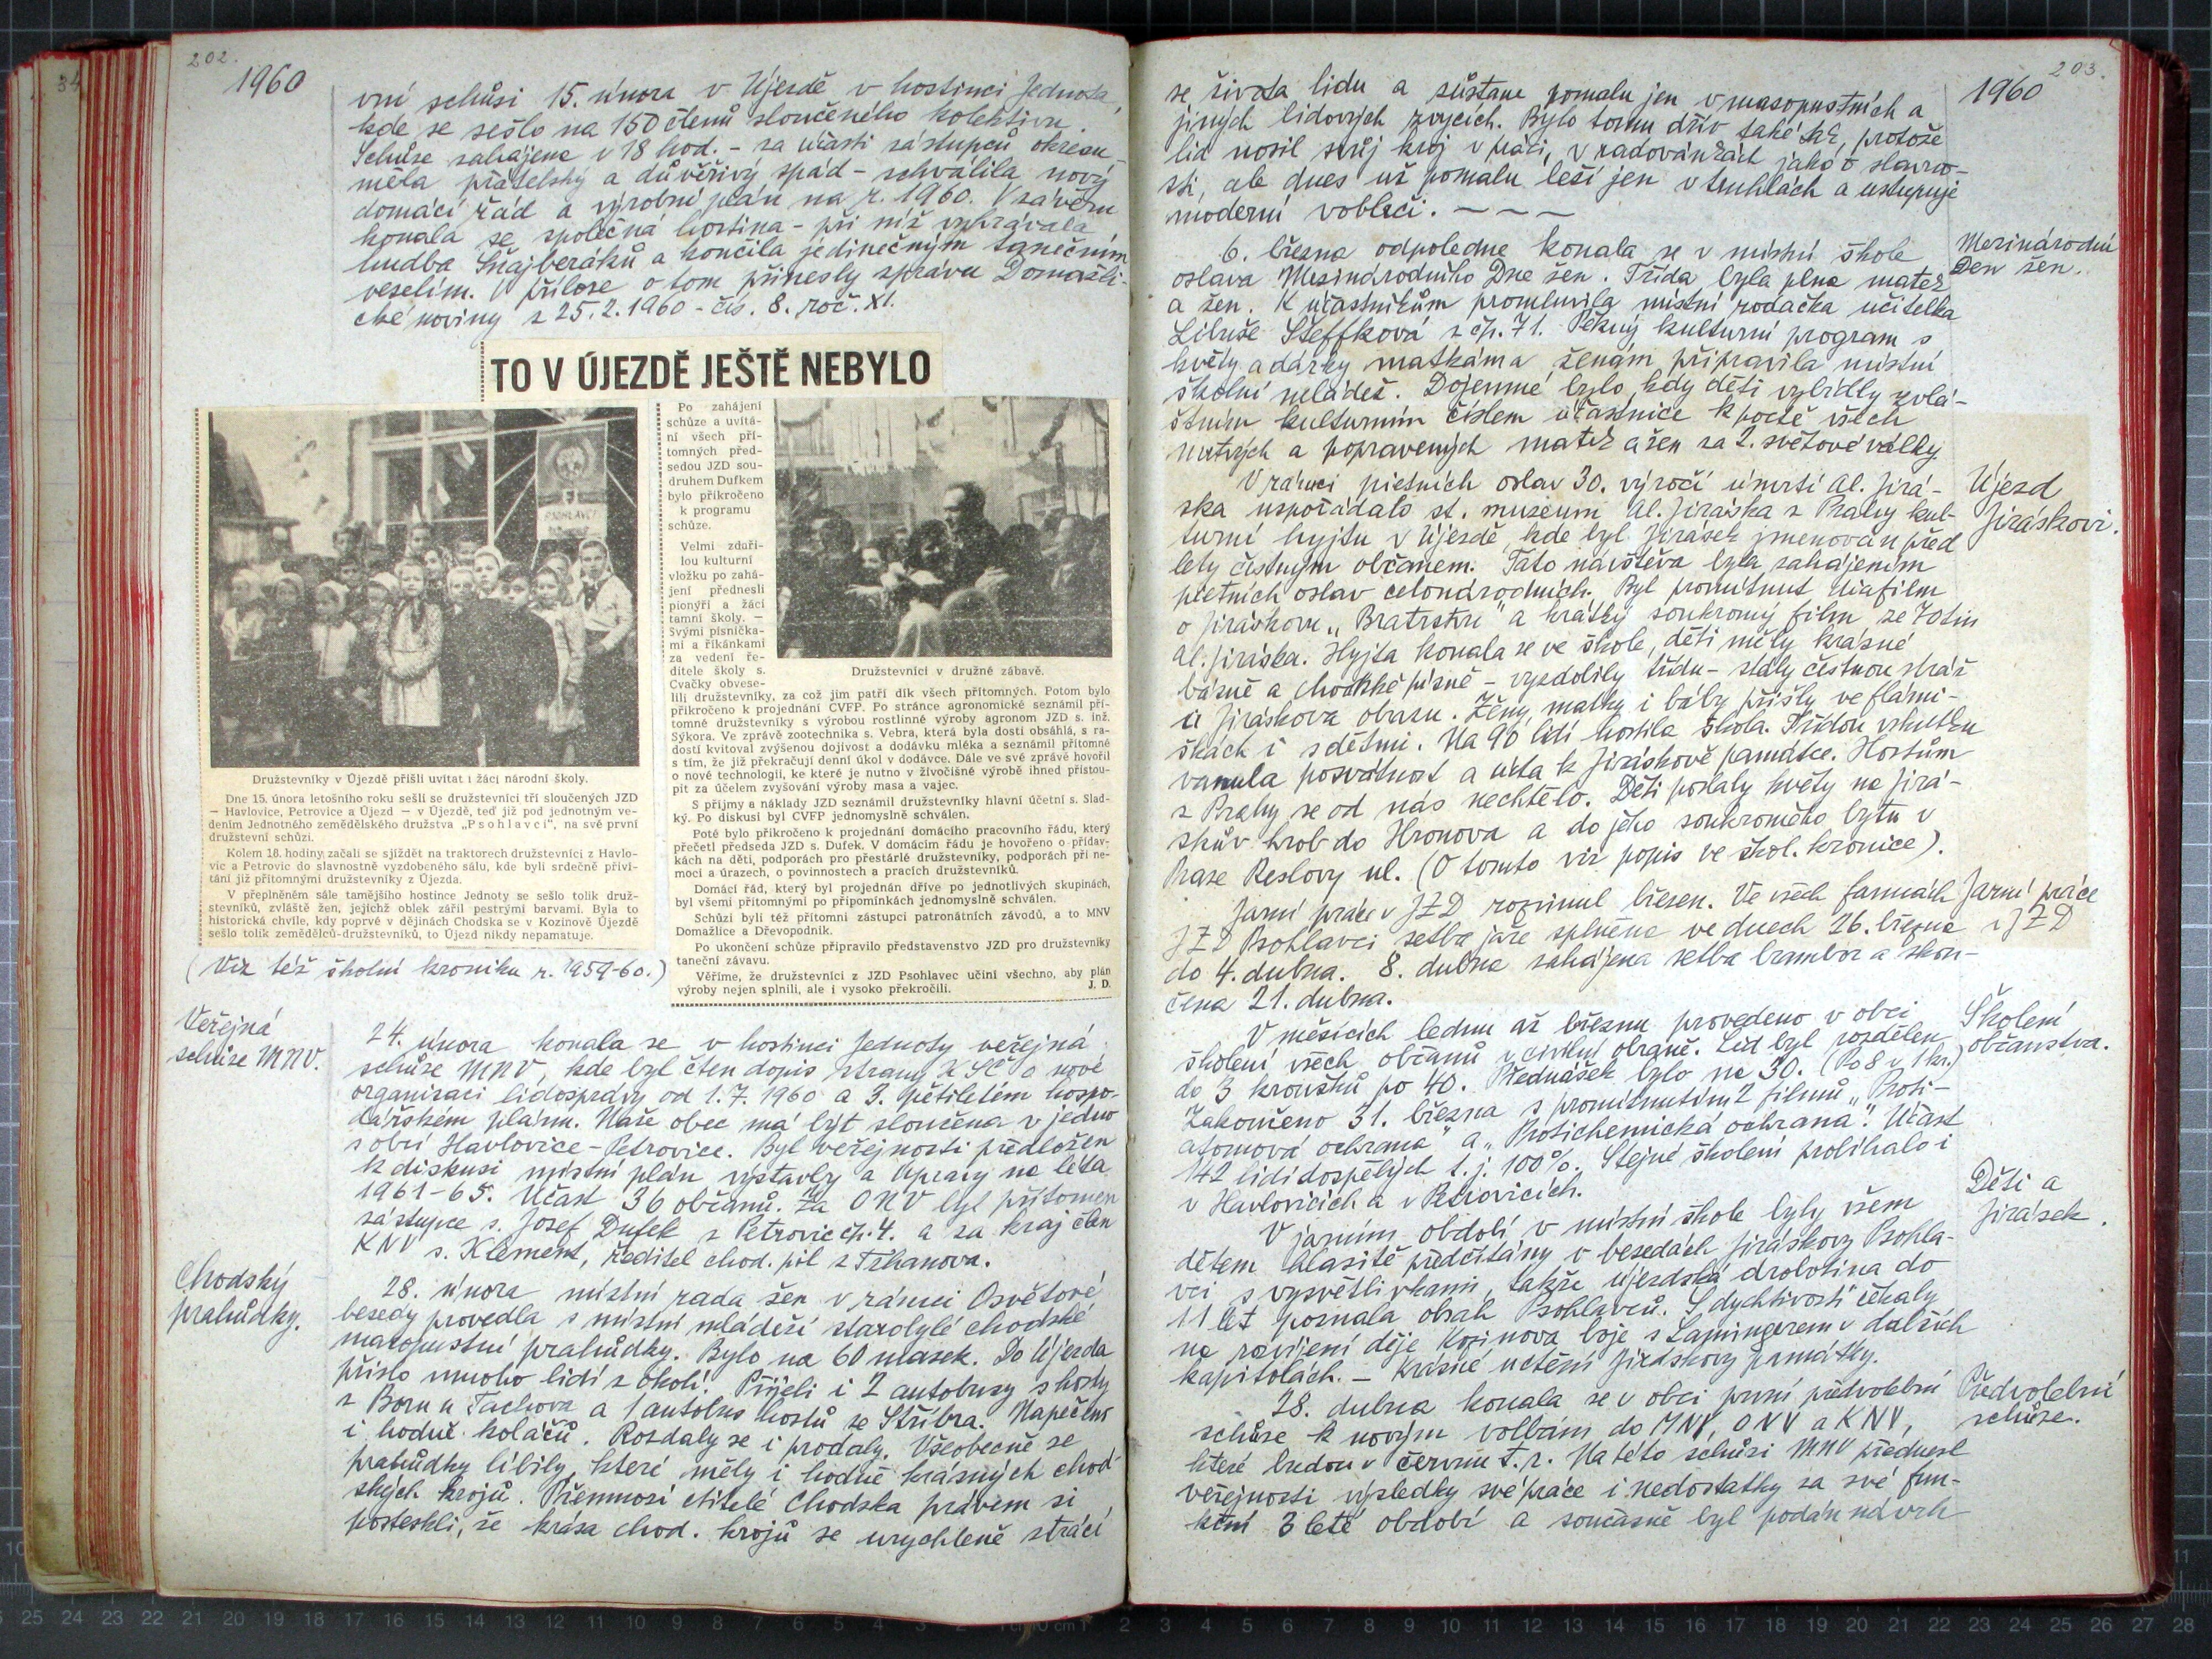 202.
1960
vní schůsi 15. února v Újezdě v hostinci Jednota,
kde se sešlo na 150 členů sloučeného kolektivu.
Schůze zahájena v 18 hod. – za účasti zástupců okresu –
měla přátelský a důvěřivý spád – schválila nový
domácí řád a výrobní plán na r. 1960. V závěru
konala se společná hostina – při níž vyhrávala
hudba Šnajberáků a končila jedinečným tanečním
veselím. V příloze o tom přinesly zprávu Domažli-
cké noviny z 25. 2. 1960 – čís. 8. roč. XI.
TO V ÚJEZDĚ JEŠTĚ NEBYLO
Družstevníky v Újezdě přišli uvítat i žáci národní školy.
Dne 15. února letošního roku sešli se družstevníci tří sloučených JZD
— Havlovice, Petrovice a Újezd — v Újezdě, teď již pod jednotným ve-
dením Jednotného zemědělského družstva „Psohlavci", na své první
družstevní schůzi.
Kolem 18. hodiny začali se sjíždět na traktorech družstevníci z Havlo-
vic a Petrovic do slavnostně vyzdobeného sálu, kde byli srdečně přiví-
táni již přítomnými družstevníky z Újezda.
V přeplněném sále tamějšího hostince Jednoty se sešlo tolik druž-
stevníků, zvláště žen, jejichž oblek zářil pestrými barvami. Byla to
historická chvíle, kdy poprvé v dějinách Chodska se v Kozinově Újezdě
sešlo tolik zemědělců-družstevníků, to Újezd nikdy nepamatuje.
Po zahájení
schůze a uvítá-
ní všech pří-
tomných před-
sedou JZD sou-
druhem Dufkem
bylo přikročeno
k programu
schůze.
Velmi zdaři-
lou kulturní
vložku po zahá-
jení přednesli
pionýři a žáci
tamní školy. —
Svými písnička-
mi a říkánkami
za vedení ře-
ditele školy s.
Cvačky obvese-
lili družstevníky, za což jim patří dík všech přítomných. Potom bylo
přikročeno k projednání CVFP. Po stránce agronomické seznámil pří-
tomné družstevníky s výrobou rostlinné výroby agronom JZD s. inž.
Sýkora. Ve zprávě zootechnika s. Vebra, která byla dosti obsáhlá, s ra-
dostí kvitoval zvýšenou dojivost a dodávku mléka a seznámil přítomné
s tím, že již překračují denní úkol v dodávce. Dále ve své zprávě hovořil
o nové technologii, ke které je nutno v živočišné výrobě ihned přistou-
pit za účelem zvyšování výroby masa a vajec.
S příjmy a náklady JZD seznámil družstevníky hlavní účetní s. Slad-
ký. Po diskusi byl CVFP jednomyslně schválen.
Poté bylo přikročeno k projednání domácího pracovního řádu, který
přečetl předseda JZD s. Dufek. V domácím řádu je hovořeno o přídav-
kách na děti, podporách pro přestárlé družstevníky, podporách při ne-
moci a úrazech, o povinnostech a pracích družstevníků.
Domácí řád, který byl projednán dříve po jednotlivých skupinách,
byl všemi přítomnými po připomínkách jednomyslně schválen.
Schůzi byli též přítomni zástupci patronátních závodů, a to MNV
Domažlice a Dřevopodnik.
Po ukončení schůze připravilo představenstvo JZD pro družstevníky
taneční závavu.
Věříme, že družstevníci z JZD Psohlavec učiní všechno, aby plán
výroby nejen splnili, ale i vysoko překročili. J. D.
Družstevníci v družné zábavě.
(Viz též školní kroniku r. 1959-60.)
Veřejná
schůze MNV.
24. února konala se v hostinci Jednoty veřejná
schůze MNV, kde byl čten dopis strany KSČ o nové
organisaci lidosprávy od 1. 7. 1960 a 3. pětiletém hospo-
dářském plánu. Naše obec má být sloučena v jedno
s obcí Havlovice – Petrovice. Byl veřejnosti předložen
k diskusi místní plán výstavby a úpravy na léta
1961-65. Účast 36 občanů. Za ONV byl přítomen
zástupce s. Josef Dufek z Petrovic čp. 4. a za kraj člen
KNV s. Klement, ředitel chod. pil z Trhanova.
Chodský
prahůdky.
28. února místní rada žen v rámci Osvětové
besedy provedla s místní mládeží starobylé chodské
masopustní prahůdky. Bylo na 60 masek. Do Újezda
přišlo mnoho lidí z okolí. Přijeli i 2 autobusy s hosty
z Boru u Tachova a 1 autobus hostů ze Stříbra. Napečeno
i hodně koláčů. Rozdaly se i prodaly. Všeobecně se
prahůdky líbily, které měly i hodně krásných chod-
ských krojů. Přemnozí ctitelé Chodska právem si
postěskli, že krása chod. krojů se urychleně ztrácí
203.
1960
se života lidu a zůstane pomalu jen v masopustních a
jiných lidových zvycích. Bylo tomu dřív také tak, protože
lid nosil svůj kroj v práci, v radovánkách jako o slavno-
sti, ale dnes už pomalu leží jen v truhlách a ustupuje
moderní voblečí. – – –
Mezinárodní
Den žen.
6. března odpoledne konala se v místní škole
oslava Mezinárodního Dne žen. Třída byla plna matek
a žen. K účastníkům promluvila místní rodačka učitelka
Libuše Steffková z čp. 71. Pěkný kulturní program s
květy a dárky matkám a ženám připravila místní
školní mládež. Dojemné bylo, kdy děti vybídly zvlá-
štním kulturním číslem účastnice k poctě všech
mrtvých a popravených matek a žen za 2. světové války.
Újezd
Jiráskovi.
V rámci pietních oslav 30. výročí úmrtí Al. Jirá-
ska uspořádalo st. museum Al. Jiráska z Prahy kul-
turní hyjtu v Újezdě, kde byl Jirásek jmenován před
lety čestným občanem. Tato návštěva byla zahájením
pietních oslav celonárodních. Byl promítnut diafilm
o Jiráskovu „Bratrstvu" a krátký soukromý film ze života
Al. Jiráska. Hyjta konala se ve škole, děti měly krásné
básně a chodské písně – vyzdobily třídu – stály čestnou stráž
u Jiráskova obrazu. Ženy, matky i báby přišly ve flámi-
škách i s dětmi. Na 90 lidí hostila škola. Třídou vskutku
vanula posvátnost a úcta k Jiráskově památce. Hostům
z Prahy se od nás nechtělo. Děti poslaly květy na Jirá-
skův hrob do Hronova a do jeho soukromého bytu v
Praze Reslovy ul. (O tomto viz popis ve škol. kronice).
Jarní práce
v JZD
Jarní práce v JZD rozvinul březen. Ve všech farmách
JZD Psohlavci setba jaře splněna ve dnech 26. března
do 4. dubna. 8. dubna zahájena setba brambor a skon-
čena 21. dubna.
Školení
občanstva.
V měsících lednu až březnu provedeno v obci
školení všech občanů v civilní obraně. Lid byl rozdělen
do 3 kroužků po 40. Přednášek bylo na 30. (Po 8 v 1 kr.)
Zakončeno 31. března s promítnutím 2 filmů „Proti-
atomová ochrana" a „Protichemická ochrana". Účast
142 lidí dospělých t. j. 100%. Stejné školení probíhalo i
v Havlovicích a v Petrovicích.
Děti a
Jirásek.
V jarním období v místní škole byly všem
dětem hlasitě předčítány v besedách Jiráskovy Psohla-
vci s vysvětlivkami, takže újezdská drobotina do
11 let poznala obsah Psohlavců. S dychtivostí čekaly
na rozvíjení děje Kozinova boje s Lamingerem v dalších
kapitolách. – Krásné uctění Jiráskovy památky.
Předvolební
schůze.
28. dubna konala se v obci první předvolební
schůze k novým volbám do MNV, ONV a KNV,
které budou v červnu t. r. Na této schůsi MNV přednesl
veřejnosti výsledky své práce i nedostatky za své fun-
kční 3 leté období a současně byl podán návrh